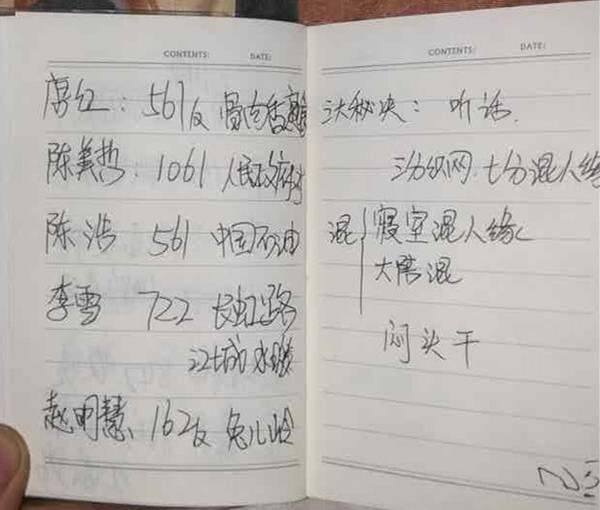 CONTENTS: DATE:
唐红: 567反 骨肉香
陈美哲: 1061 人民政府
陈浩 561 中国石油
李雪 722 长虹路
江城水
赵明慧 162反 兔儿岭
CONTENTS: DATE:
三大秘诀: 听话
三分织网 七分混人缘
混 寝室混人缘
大院混
闷头干